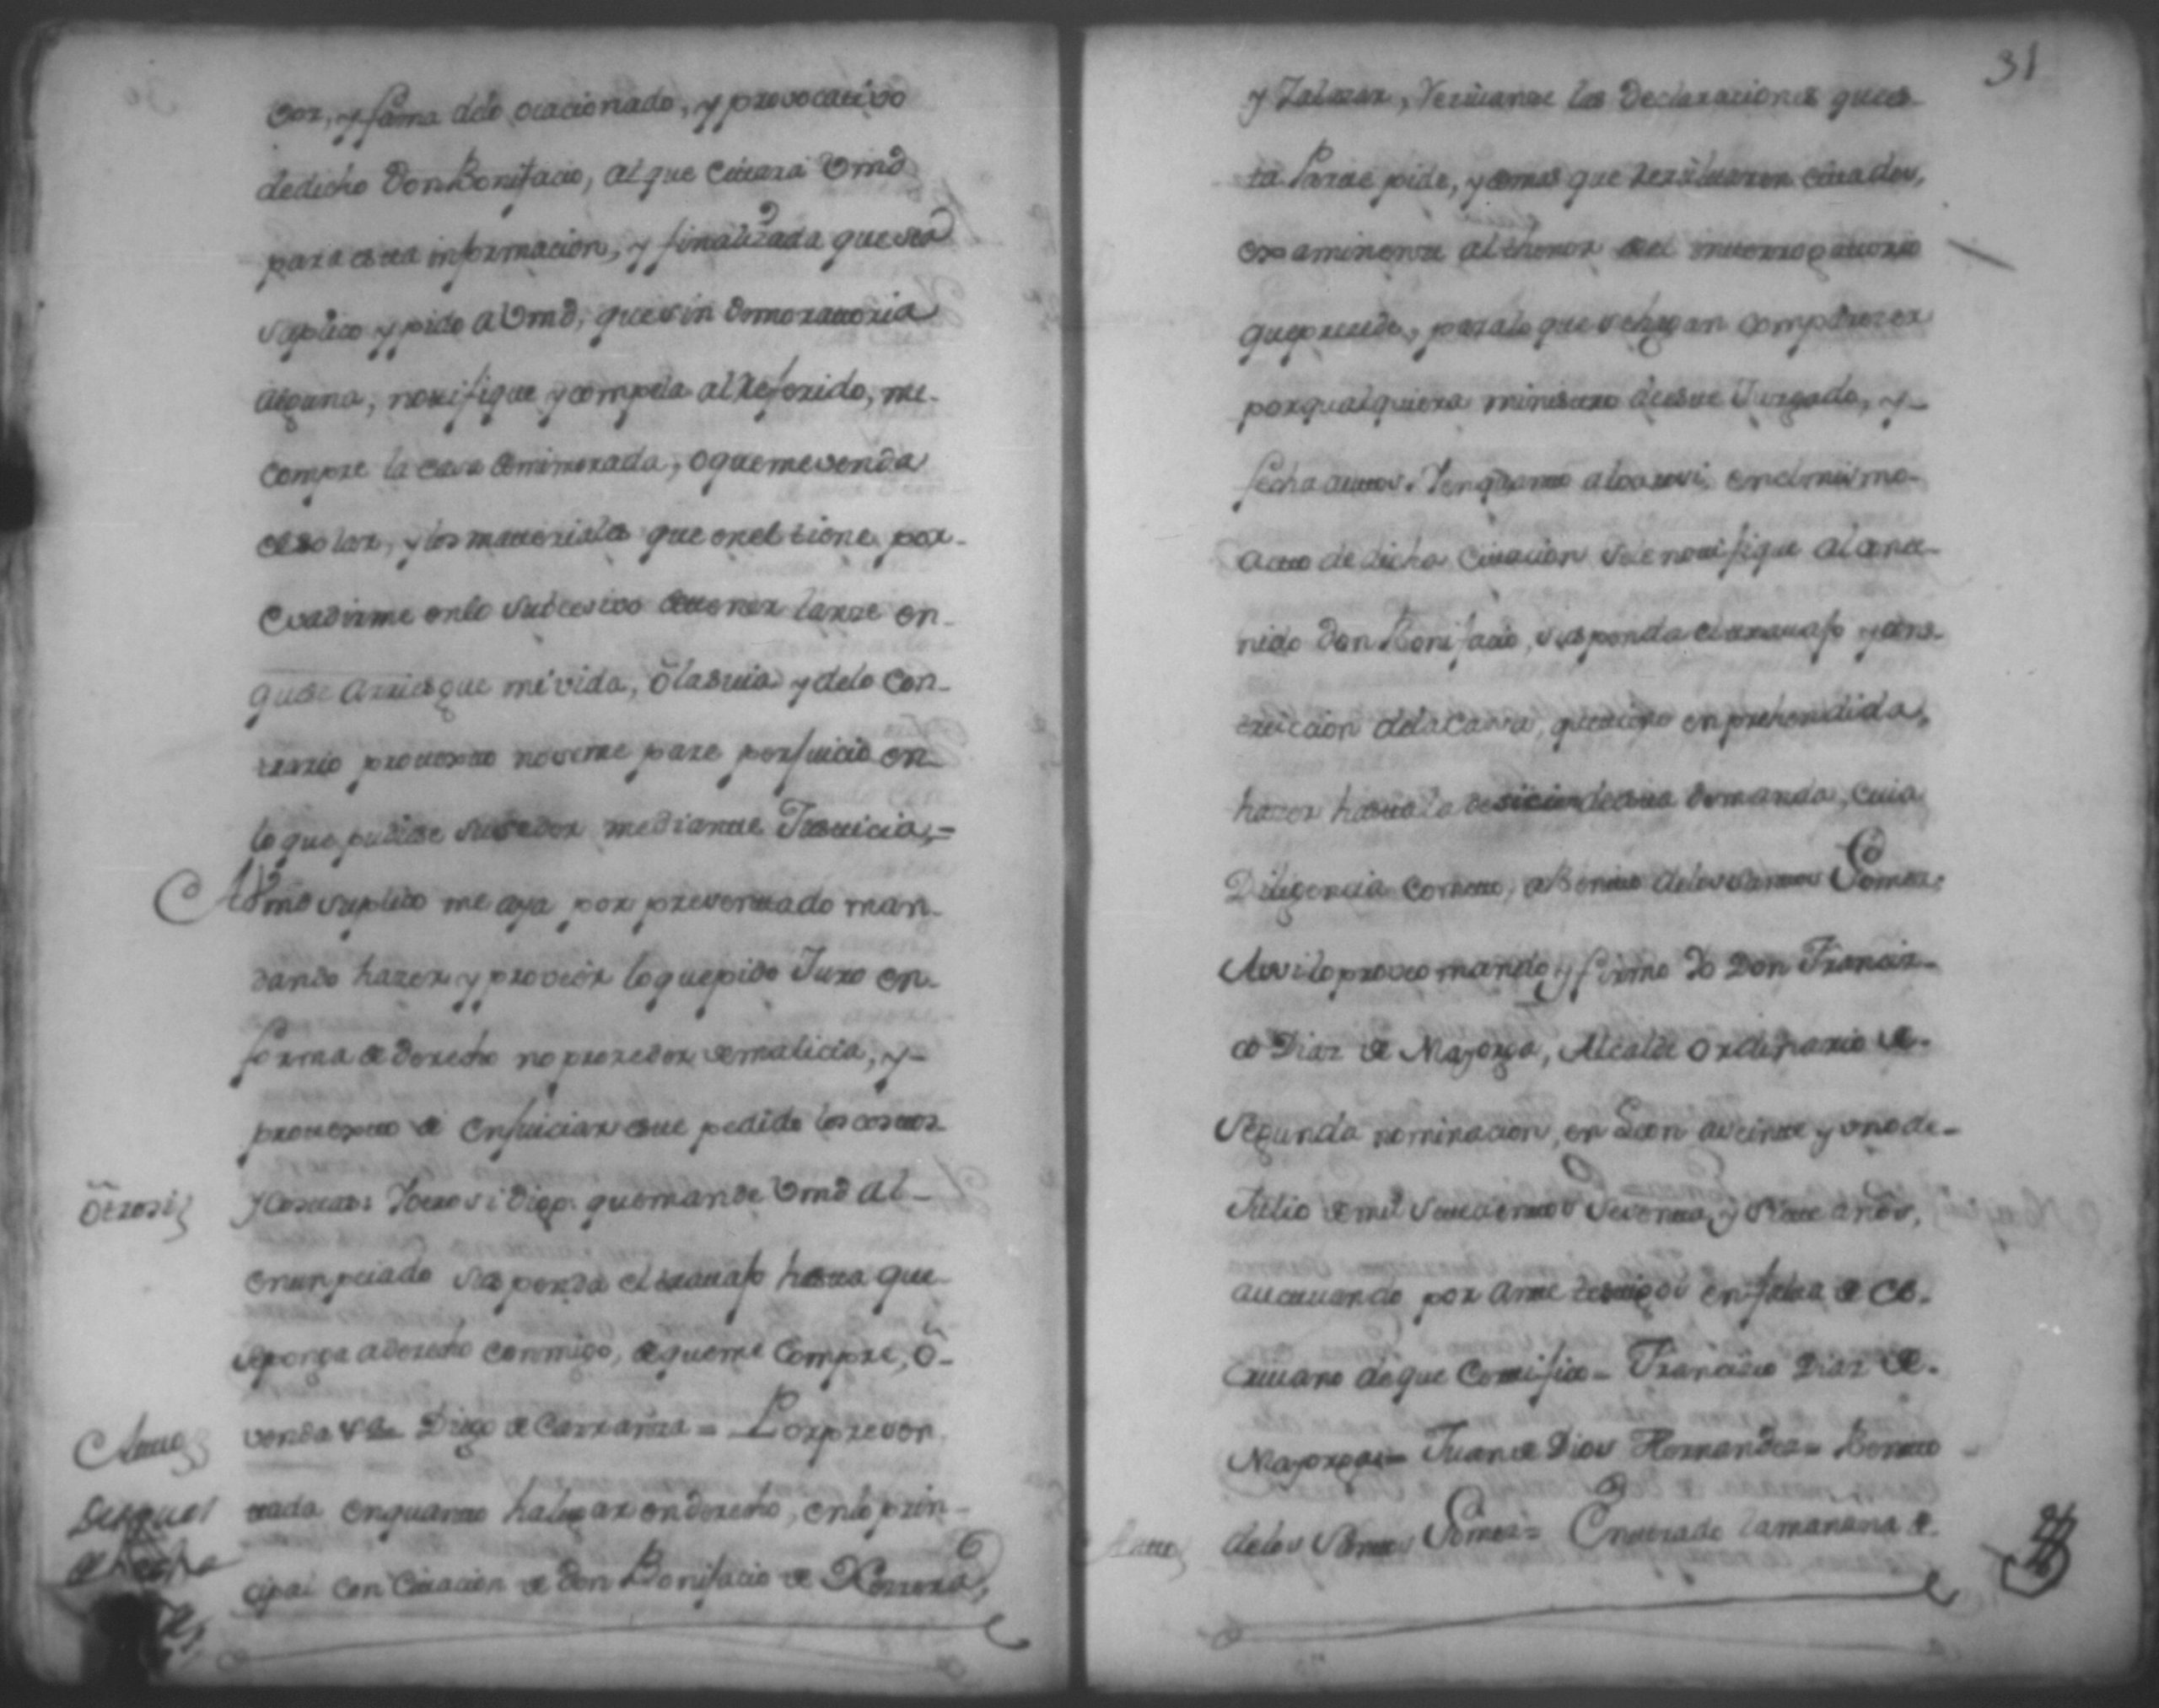 voz, y fama delo ocacionado, y provocativo
dedicho Don Bonifacio, al que citara Vmd
para esta informacion, y finalizada que sea
suplico y pido a Vmd, que sin demoratoria
alguna, notifique y compela al Referido, me
compre la casa comemorada, o que me venda
el solar, y los materiales que en el tiene por
evadirme en lo subcesivo detener lanze en
que se arriesgue mi vida, ô la suia y delo con-
trario protexto no seme pare perjuicio en
lo que pudiese suseder mediante Justicia, =
A Vmd suplico me aya por presentado man-
dando hazer y proveer lo que pido Juro en
forma de derecho no proseder demalicia, y
protexto de enjuiciar este pedido los costos
y costas: Y otro si digo. que mande Vmd al
Ôtrosi
enunpciado suspenda el travajo hasta que
se ponga a derecho conmigo, de que me compre, ô
venda Vta Diego de Carranza = Por presen
Auto
tada en quanto halugar en derecho, en lo prin-
cipal con citacion de Don Bonifacio de Herrera,
31
y Zalazar, Recivanse las Declaraciones que es-
ta Parte pide, y demas que Resultaren citados,
examinense al thenor del interrogatorio
que precede, para lo que se hagan comparezer
por qualquiera ministro de este Jusgado, y
fecha autos. Y en quanto al otro si, en el mismo
acto de dicha citacion se le notifique al conte-
nido Don Bonifacio, suspenda el travajo y cons-
truccion dela Cassa, que tiene enprehendida,
hazer hasta la desicion de esta demanda, cuia
Diligencia cometo, a Benito delos Santos Gomez.
Assi lo proveo mando y firmo Yo Don Francis-
co Diaz de Mayorga, Alcalde Ordinario de
segunda nominacion, en Leon a veinte y uno de
Julio de mil setecientos setenta, y siete años,
actuando por ante testigos en falta de Es-
crivano deque Certifico = Francisco Diaz de
Mayorga = Juan de Dios Hernandez = Benito
delos Santos Gomez = En